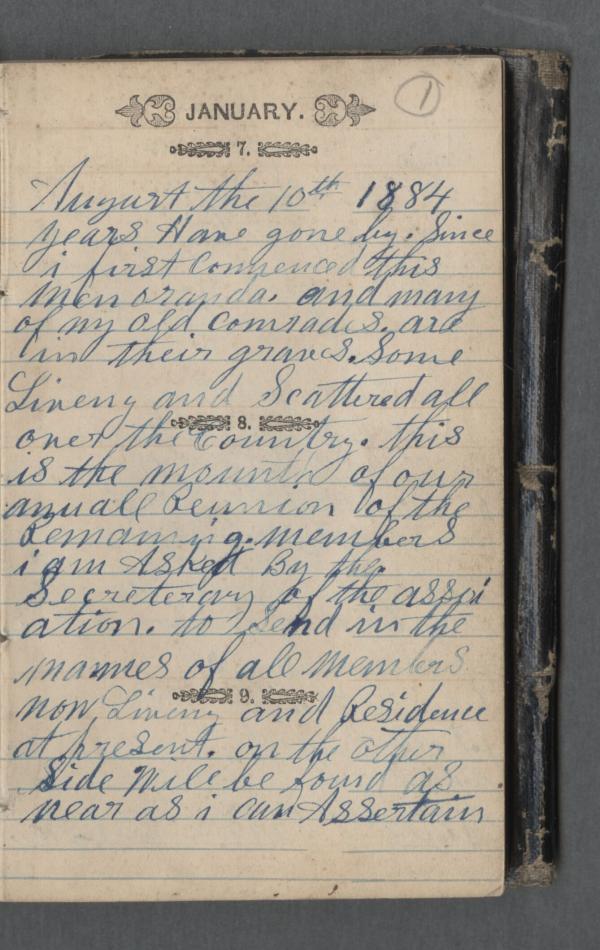 JANUARY.
1
7.
August the 10th 1884
years Have gone by. Since
i first Comenced this
Memoranda. and many
of my old comrades. are
in their graves. Some
Liveng and Scattered all
8.
over the Country. this
is the mounth of our
anuall Reunion of the
Remaining. members
i am Asked By the
Secreterary of the assoi
ation. to Send in the
nannes of all Members
9.
now Liveng and Residence
at present. on the other
Side Will be found as
near as i can Assertain